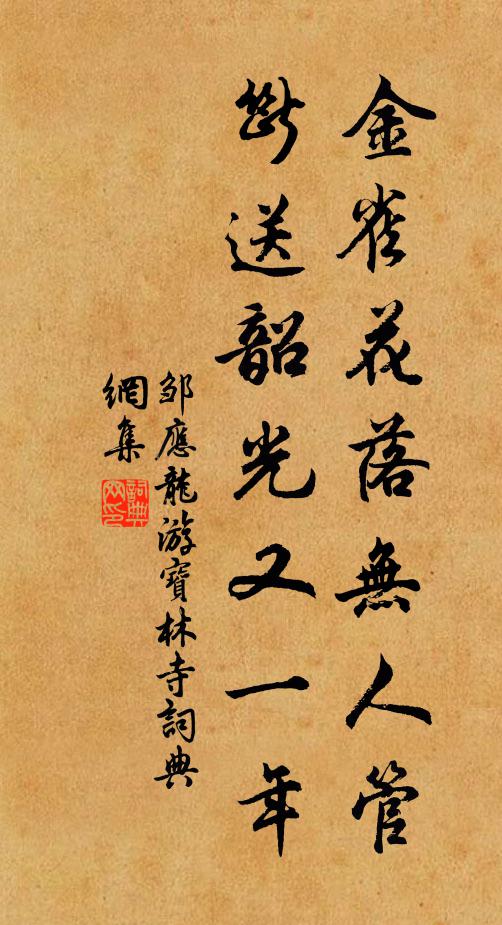 金雀花落無人管
斷送韶光又一年
鄒應龍游寶林寺詞典
網集
詞典
網印